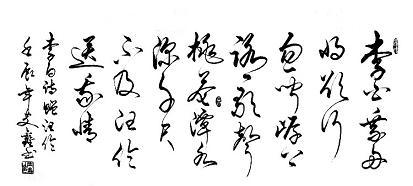 李白乘舟
将欲行
忽闻岸上
踏歌声
桃花潭水
深千尺
不及汪伦
送我情
李白诗赠汪伦
壬辰年